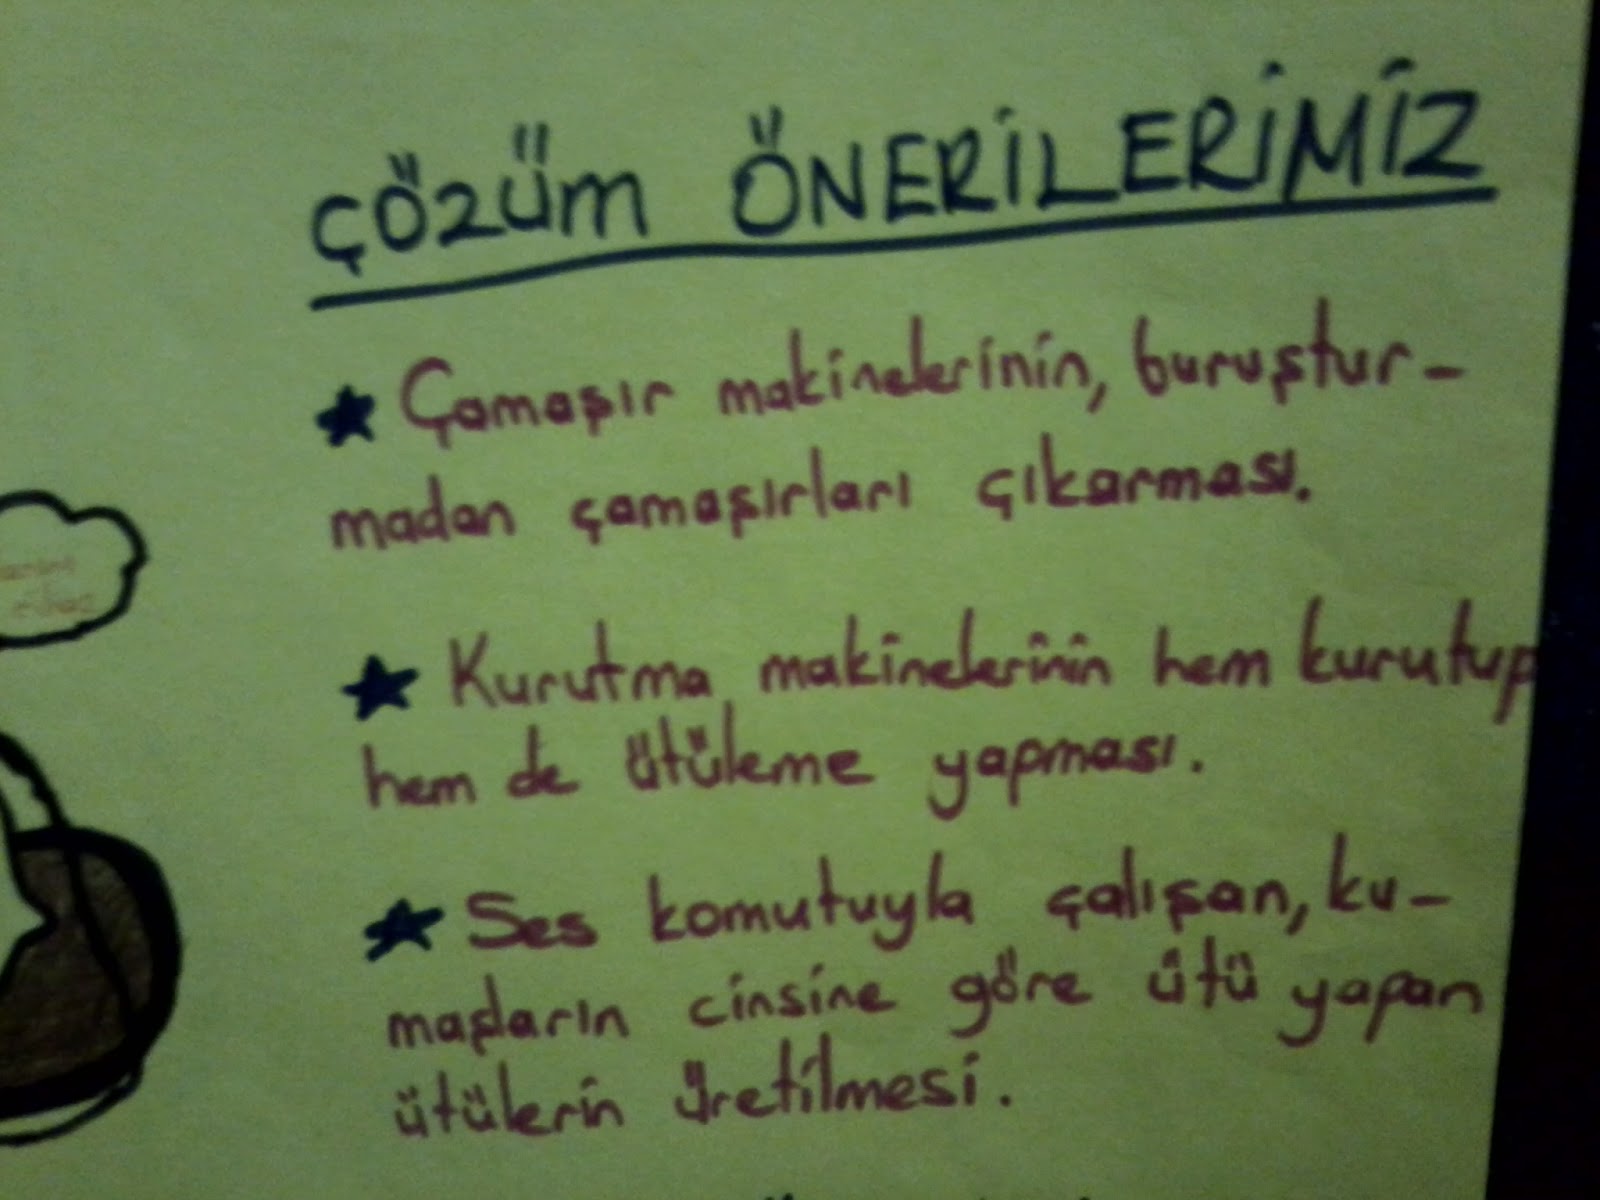 ÇÖZÜM ÖNERİLERİMİZ
★ Çamaşır makinelerinin, buruştur-
madan çamaşırları çıkarması.
★ Kurutma makinelerinin hem kurutup
hem de ütüleme yapması.
★ Ses komutuyla çalışan, ku-
maşların cinsine göre ütü yapan
ütülerin üretilmesi.